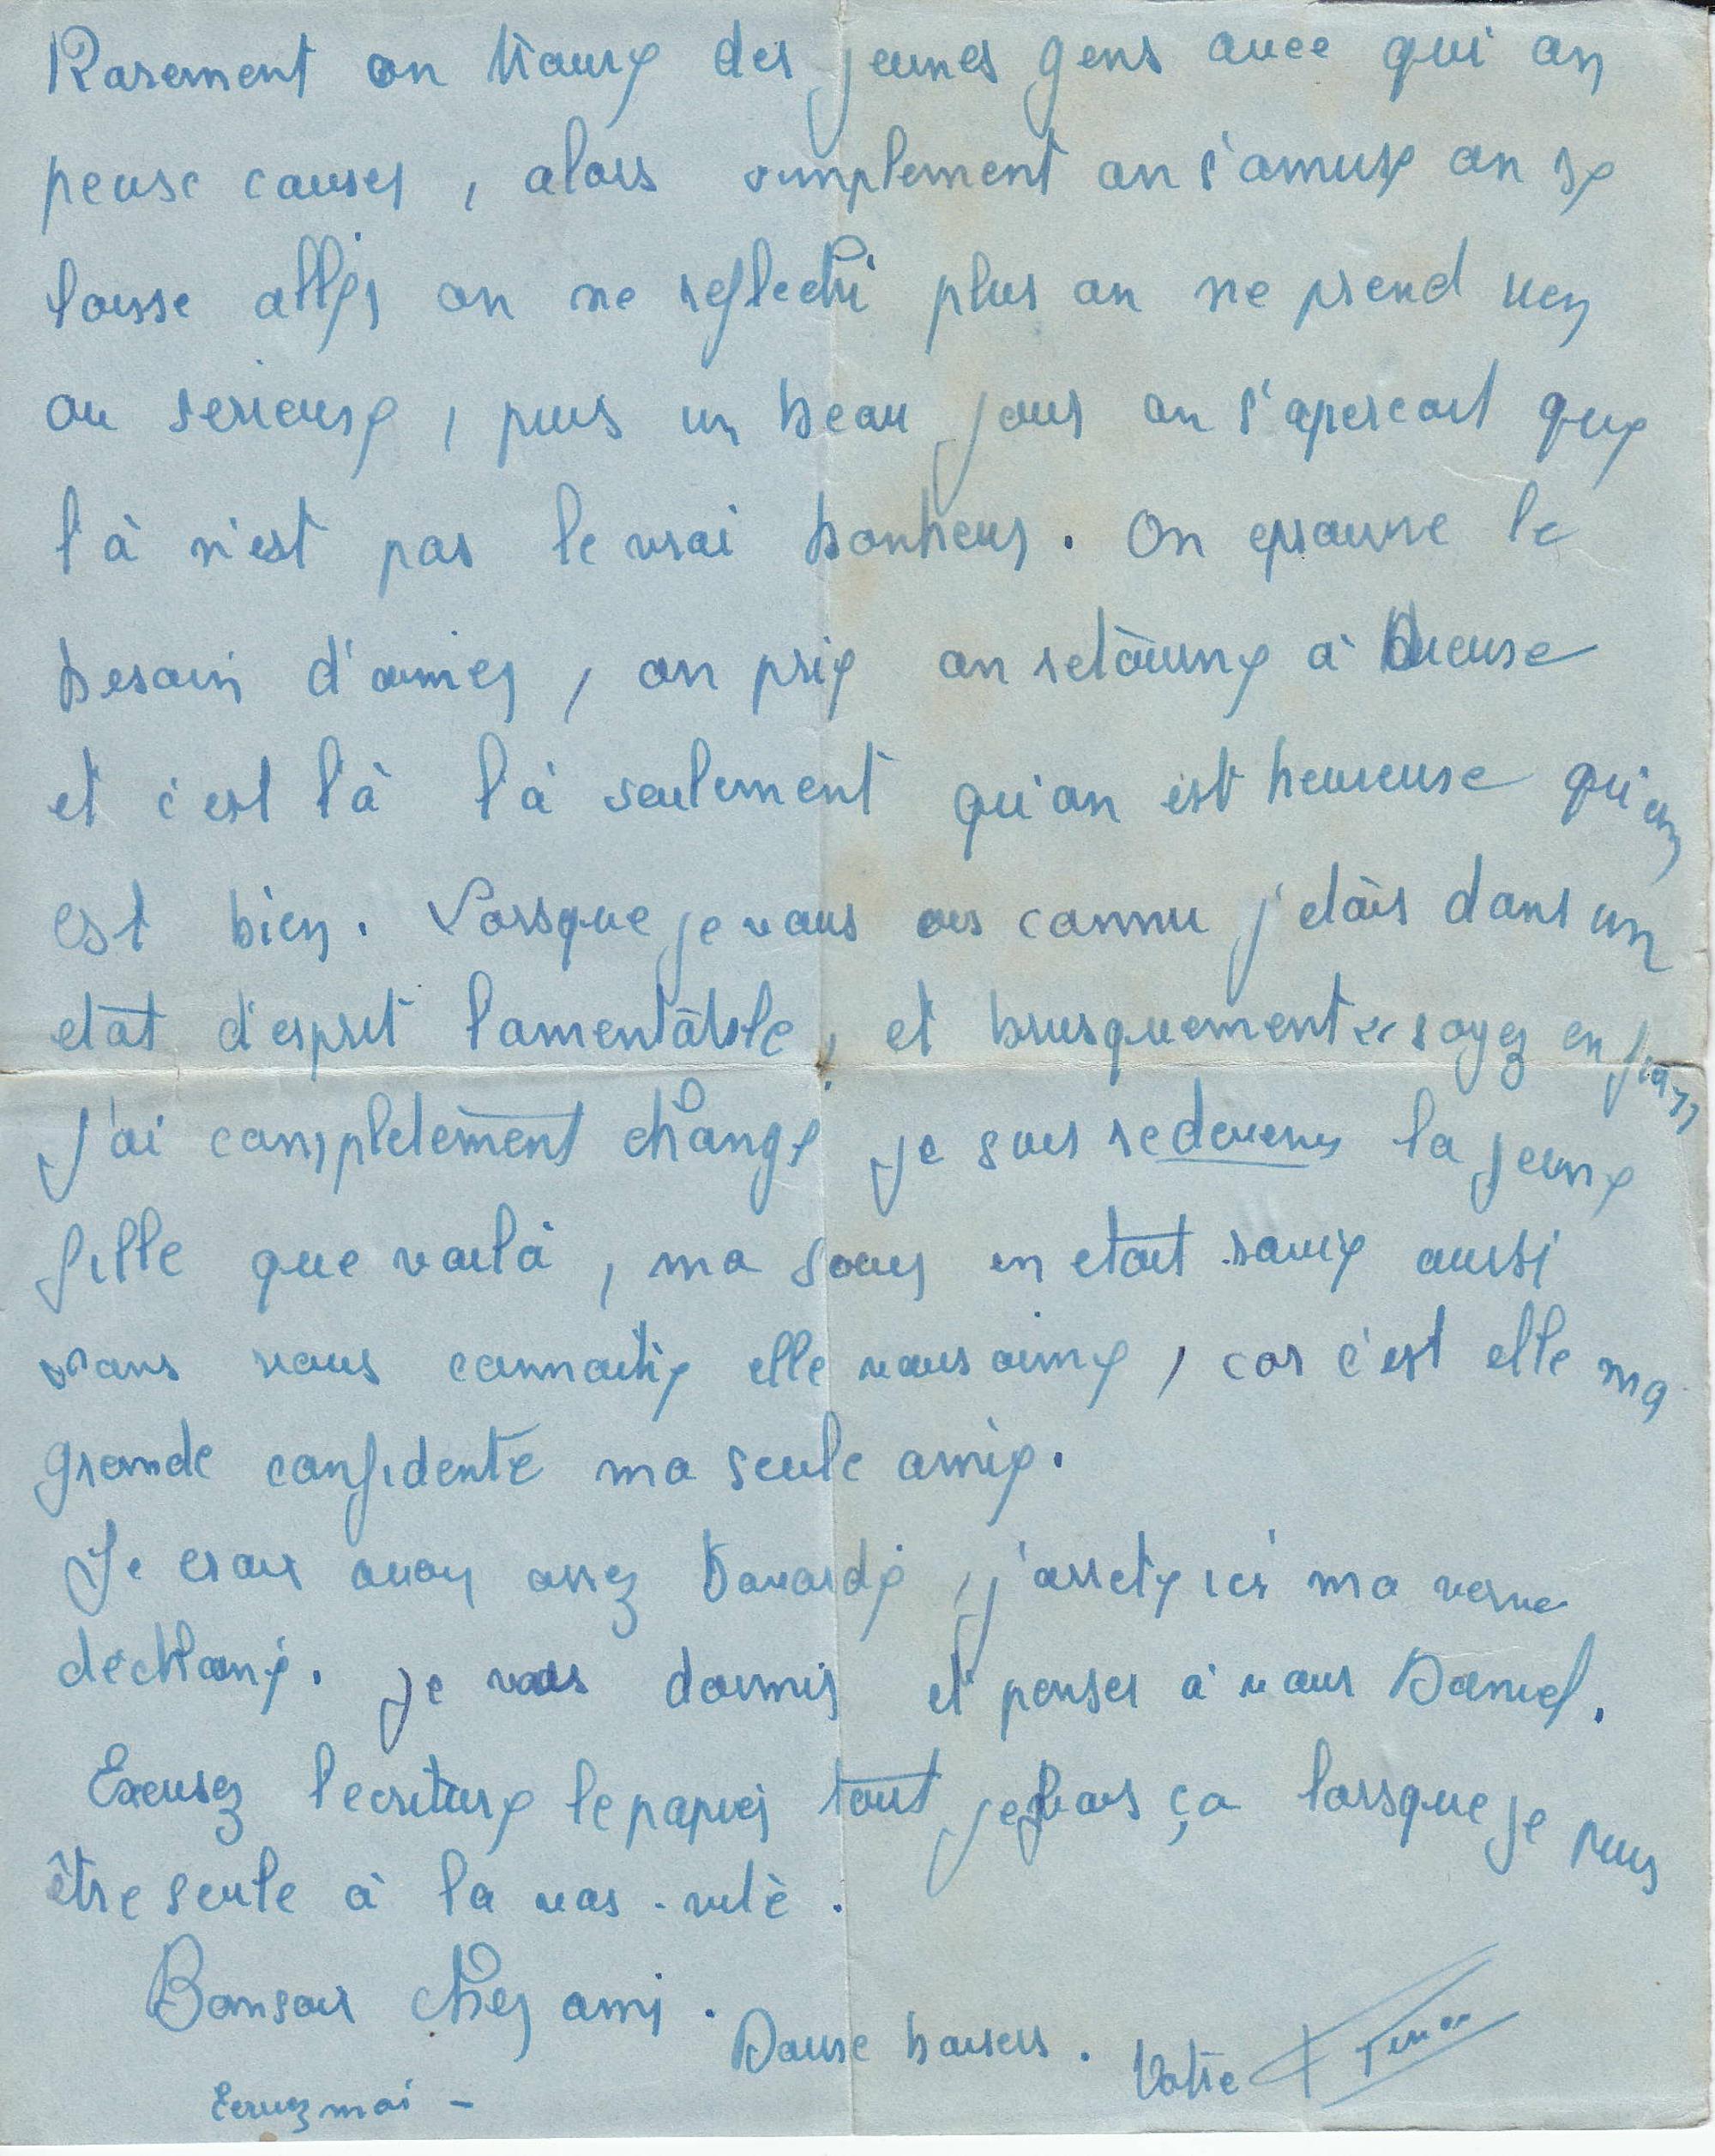 Rarement on trouve des jeunes gens avec qui on
peuse causer, alors simplement on s'amuse on se
laisse aller on ne reflechi plus on ne prend rien
au serieuse, puis un beau jour on s'apercoit que
là n'est pas le vrai bonheur. On eprouve le
besoin d'aimer, on prie on retourne à
et c'est là là seulement qu'on est heureuse qu'on
est bien. Lorsque je vous ais connu j'etais dans un
etat d'esprit lamentable, et brusquement soyez en
J'ai completement change je suis redevenu la jeune
fille que voilà, ma soeur en etait ravie aussi
sans vous connaitre elle vous aime, car c'est elle ma
grande confidente ma seule amie.
Je crois avoir assez bavardé, j'arrete ici ma verve
déchainé. Je vais dormir et penser à vous Daniel.
Excusez l'ecriture le papier tout je fais ça lorsque je puis
être seule à la vas-vite.
Bonsoir cher ami.
Douse baisers. Votre
Ecrivez moi -